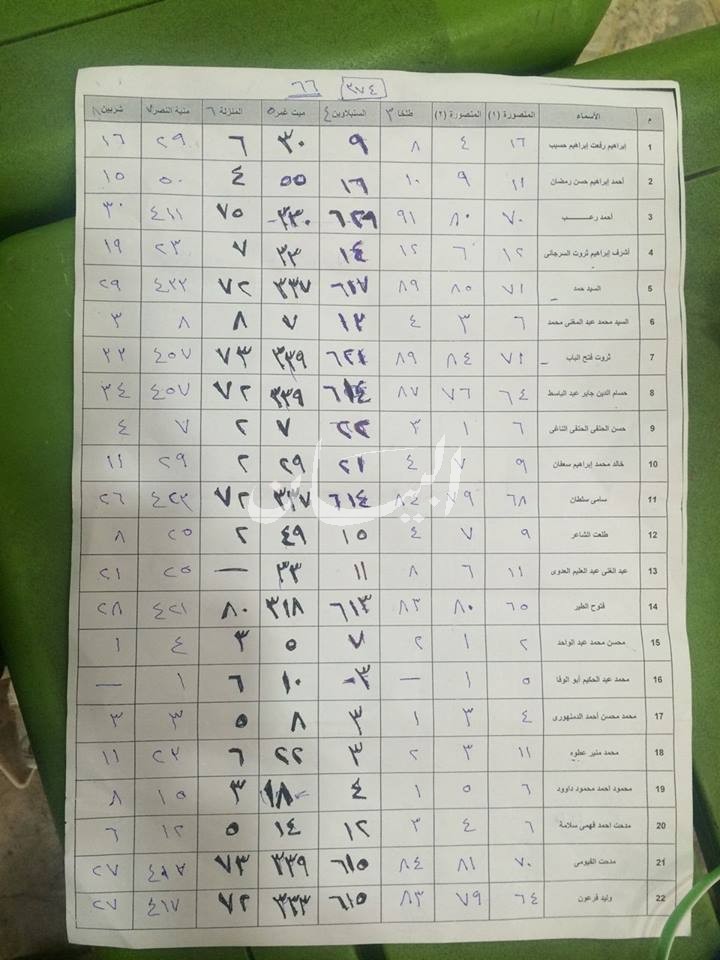 ٦٦ ٣٧٤
م الأسماء المنصورة (١) المنصورة (٢) طلخا ٣ السنبلاوين ٤ ميت غمر ٥ المنزلة ٦ منية النصر ٧ شربين ٨
1 إبراهيم رفعت إبراهيم حسيب ١٦ ٤ ٨ ٩ ٣٠ ٦ ٢٩ ١٦
2 أحمد إبراهيم حسن رمضان ١١ ٩ ١٠ ١٦ ٥٥ ٤ ٥٠ ١٥
3 أحمد رعب ٧٠ ٨٠ ٩١ ٦٢٩ ٣٣٠ ٧٥ ٤١١ ٣٠
4 أشرف إبراهيم ثروت السرجانى ١٢ ٦ ١٢ ١٤ ٣٣ ٧ ٢٣ ١٩
5 السيد حمد ٧١ ٨٥ ٨٩ ٦١٧ ٣٣٧ ٧٢ ٤٢٢ ٢٩
6 السيد محمد عبد المغنى محمد ٦ ٣ ٤ ١٢ ٧ ٨ ٨ ٣
7 ثروت فتح الباب ٧١ ٨٤ ٨٩ ٦٢١ ٣٣٩ ٧٣ ٤٥٧ ٢٢
8 حسام الدين جابر عبد الباسط ٦٤ ٧٦ ٨٧ ٦١٤ ٣٣٩ ٧٢ ٤٥٧ ٣٤
9 حسن الحنفى الحنفى التناغى ٦ ١ ٣ ٢٢ ٧ ٢ ٧ ٤
10 خالد محمد إبراهيم سعفان ٩ ٧ ٤ ٢١ ٢٩ ٢ ٢٩ ١١
البيان
11 سامى سلطان ٦٨ ٧٩ ٨٤ ٦١٤ ٣٣٧ ٧٢ ٤٢٣ ٢٦
12 طلعت الشاعر ٩ ٧ ٤ ١٥ ٤٩ ٢ ٢٥ ٨
13 عبد الغنى عبد العليم العدوى ١١ ٦ ٨ ١١ ٣٣ — ٢٥ ٢١
14 فتوح الطير ٦٥ ٨٠ ٨٣ ٦١٣ ٣١٨ ٨٠ ٤٢١ ٢٨
15 محسن محمد عبد الواحد ٢ ١ ٢ ٧ ٥ ٣ ٤ ١
16 محمد عبد الحكيم أبو الوفا ٥ ١ — ٣ ١٠ ٦ ١ —
17 محمد محسن أحمد الدمنهورى ٤ ٣ ١ ٣ ٨ ٥ ٣ ٣
18 محمد منير عطوه ١١ ٣ ٢ ٣ ٢٢ ٦ ٢٣ ١١
19 محمود احمد محمود داوود ٦ ٥ ١ ٤ ١٨ ٣ ١٥ ٨
20 مدحت احمد فهمى سلامة ٦ ٤ ٣ ١٢ ١٤ ٥ ١٢ ٦
21 مدحت الفيومى ٧٠ ٨١ ٨٤ ٦١٥ ٣٣٩ ٧٣ ٢٧
22 وليد فرعون ٦٤ ٧٩ ٨٣ ٦١٥ ٣٣٣ ٧٢ ٤١٧ ٢٧